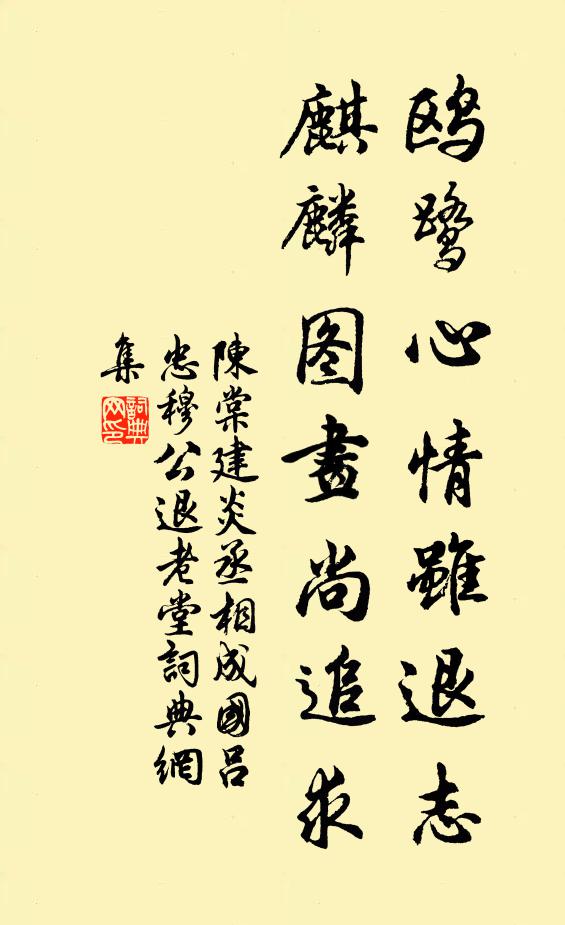 鸥鹭心情雖退志
麒麟图畫尚追求
陳棠建炎丞相成國吕
忠穆公退老堂詞典網
集
詞典
网印